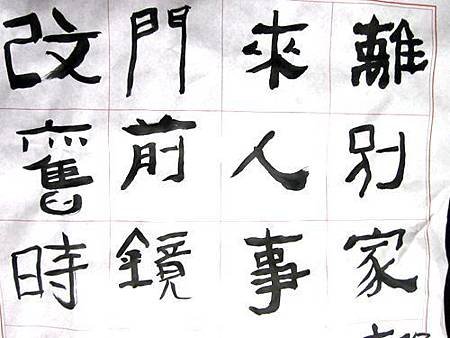 離別家
來人事
門前鏡
改舊時